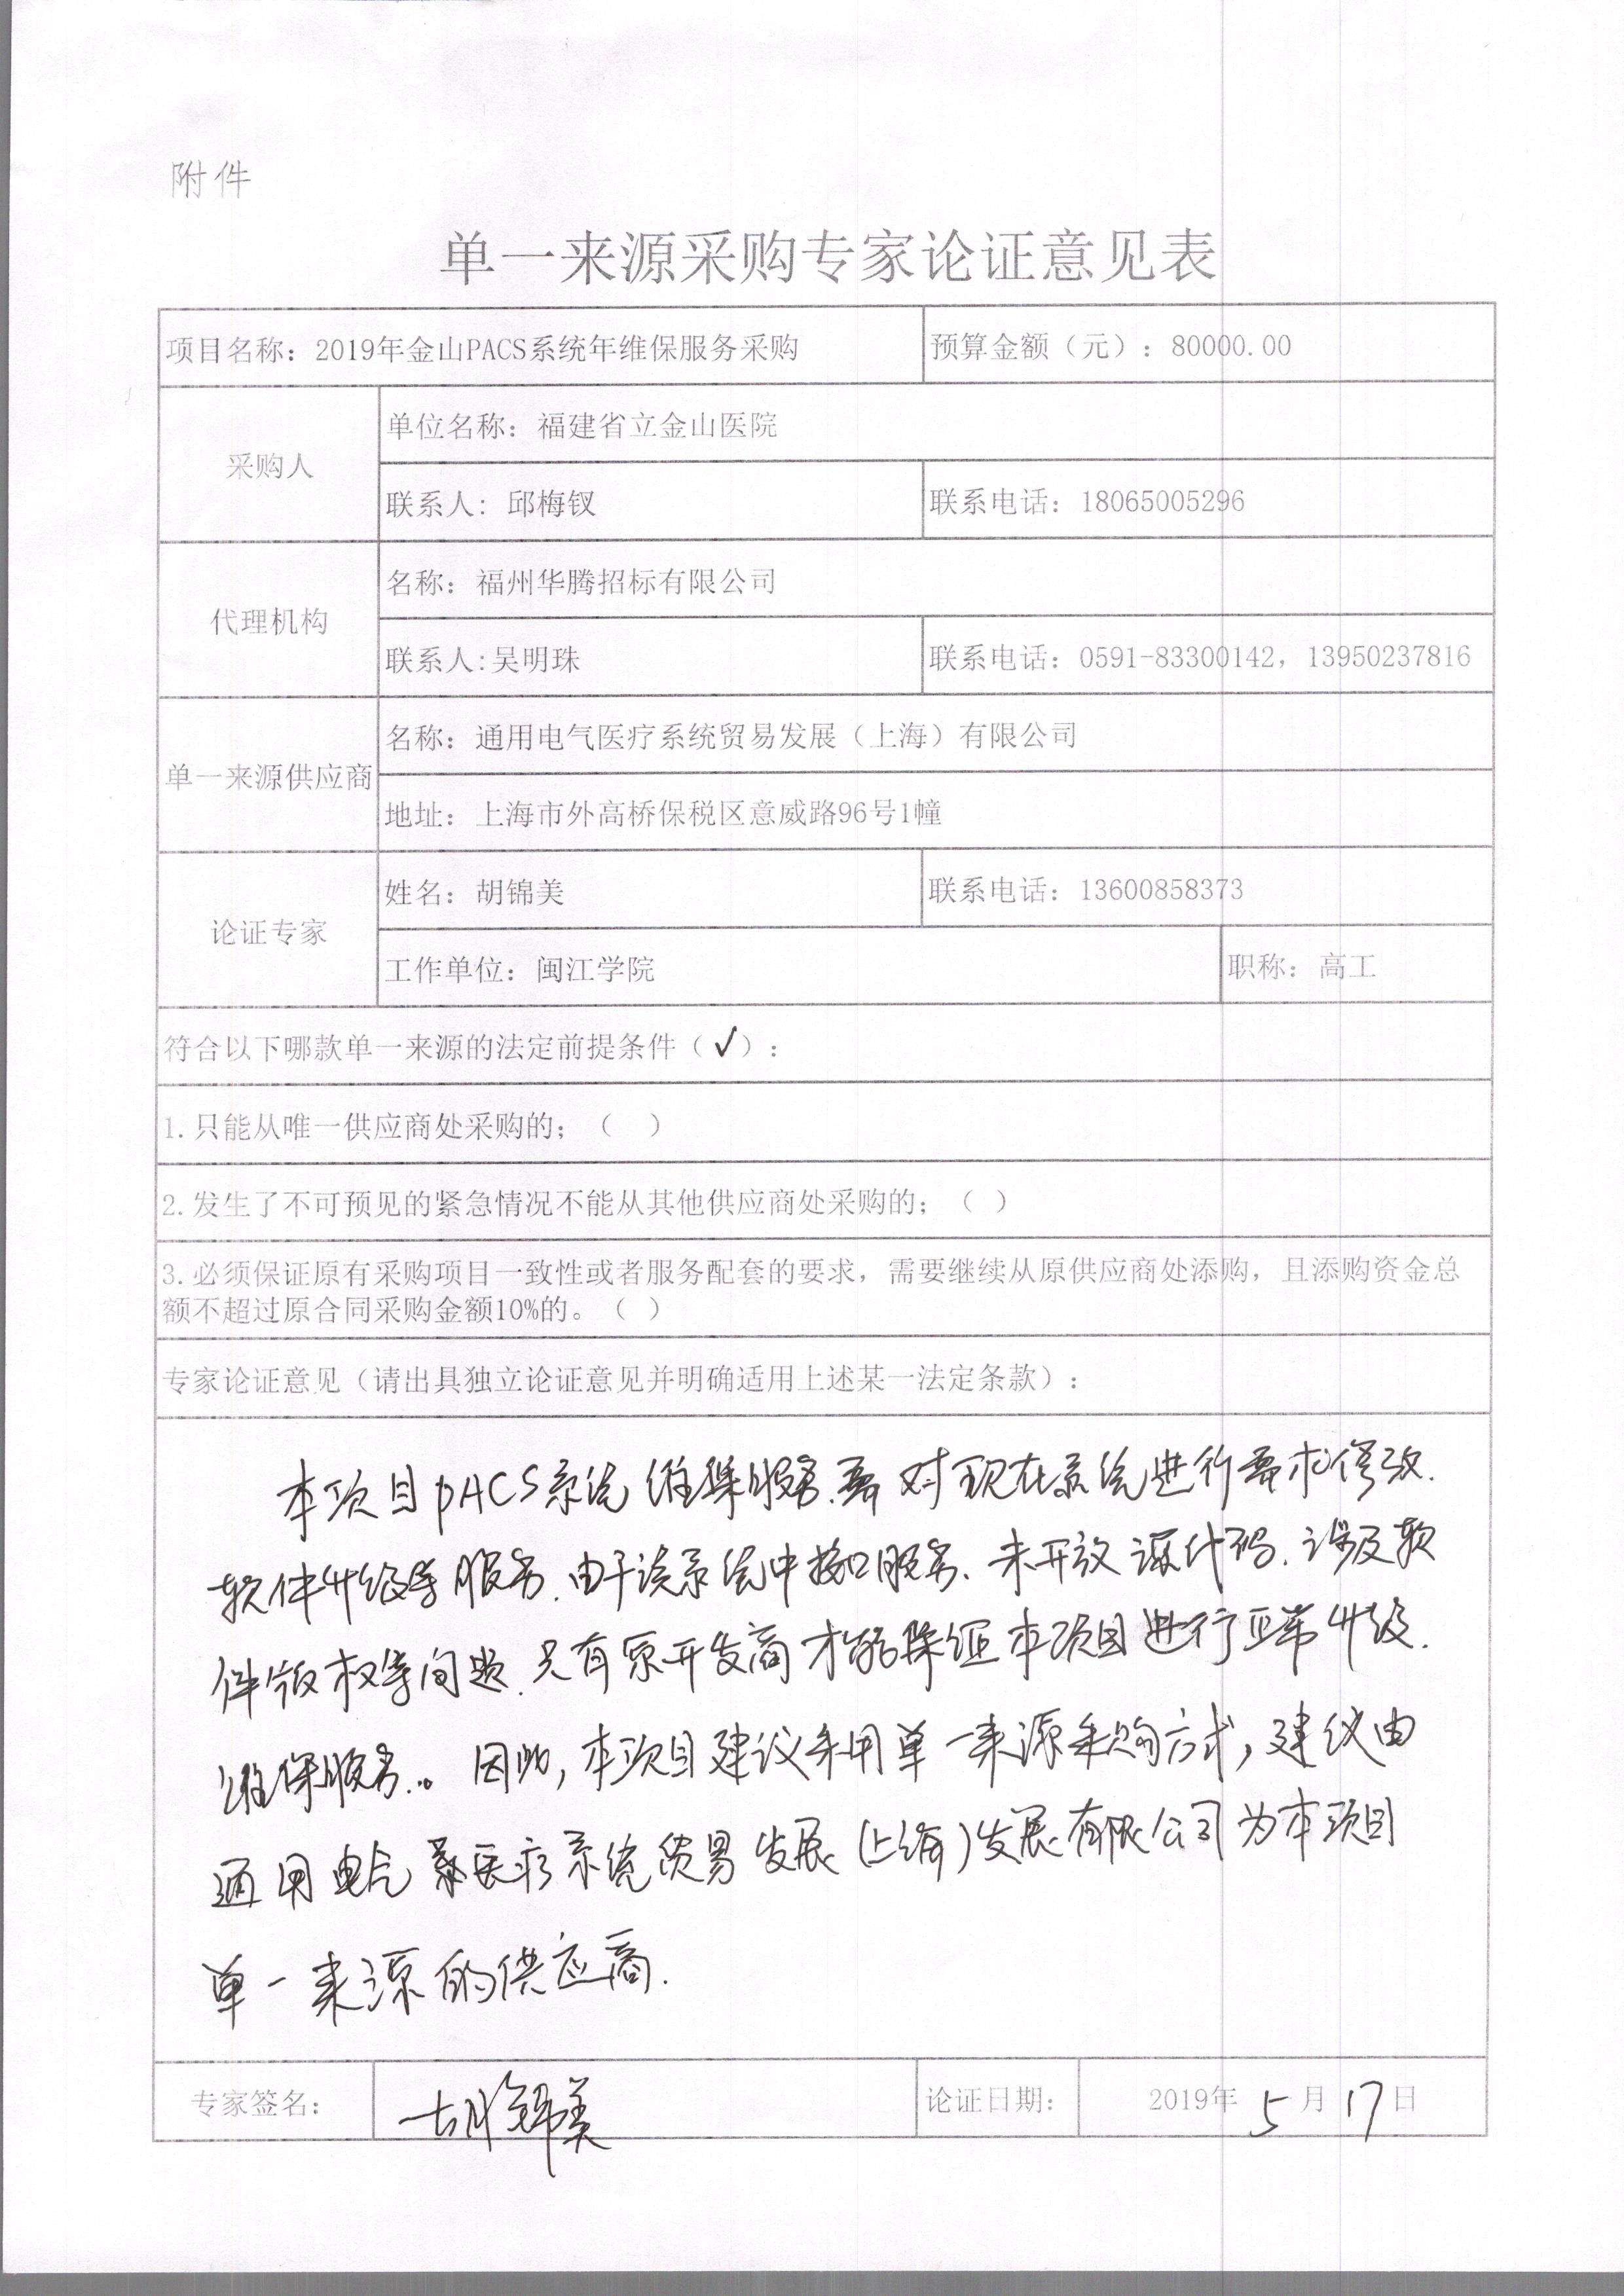 附件
单一来源采购专家论证意见表
项目名称：2019年金山PACS系统年维保服务采购 预算金额（元）：80000.00
采购人
单位名称：福建省立金山医院
联系人：邱梅钗 联系电话：18065005296
代理机构
名称：福州华腾招标有限公司
联系人:吴明珠 联系电话：0591-83300142，13950237816
单一来源供应商
名称：通用电气医疗系统贸易发展（上海）有限公司
地址：上海市外高桥保税区意威路96号1幢
论证专家
姓名：胡锦美 联系电话：13600858373
工作单位：闽江学院 职称：高工
符合以下哪款单一来源的法定前提条件（√）：
1.只能从唯一供应商处采购的；（ ）
2.发生了不可预见的紧急情况不能从其他供应商处采购的；（ ）
3.必须保证原有采购项目一致性或者服务配套的要求，需要继续从原供应商处添购，且添购资金总
额不超过原合同采购金额10%的。（ ）
专家论证意见（请出具独立论证意见并明确适用上述某一法定条款）：
本项目PACS系统维保服务.需对现在系统进行需求修改.
软件升级等服务.由于该系统中接口服务、未开放源代码.涉及软
件版权等问题.只有原开发商才能保证本项目进行正常升级.
维保服务。因此,本项目建议采用单一来源采购方式,建议由
通用电气医疗系统贸易发展(上海)发展有限公司为本项目
单一来源的供应商.
专家签名： 胡锦美 论证日期： 2019年5月17日